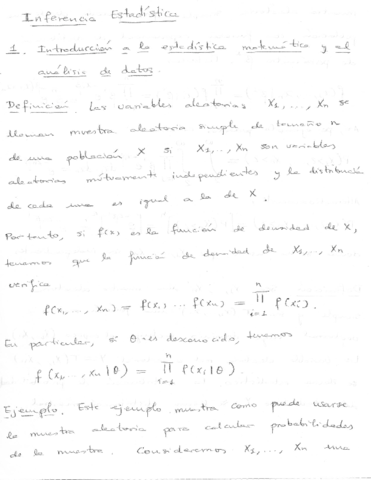 Inferencia Estadística
1. Introducción a la estadística matemática y el
análisis de datos.
Definición. Las variables aleatorias X₁, ..., Xn se
llaman muestra aleatoria simple de tamaño n
de una población X si X₁, .., Xn son variables
aleatorias mútuamente independientes y la distribución
de cada una es igual a la de X.
Por tanto, si f(x) es la función de densidad de X,
tenemos que la función de densidad de X₁, .., Xn
verifica
f(x₁, .., xn) = f(x₁) ... f(xn) = ∏ⁿᵢ₌₁ f(xᵢ).
En particular, si θ es desconocido, tenemos
f(x₁, .., xn | θ) = ∏ⁿᵢ₌₁ f(xᵢ | θ).
Ejemplo. Este ejemplo muestra como puede usarse
la muestra aleatoria para calcular probabilidades
de la muestra. Consideremos X₁, ..., Xn una